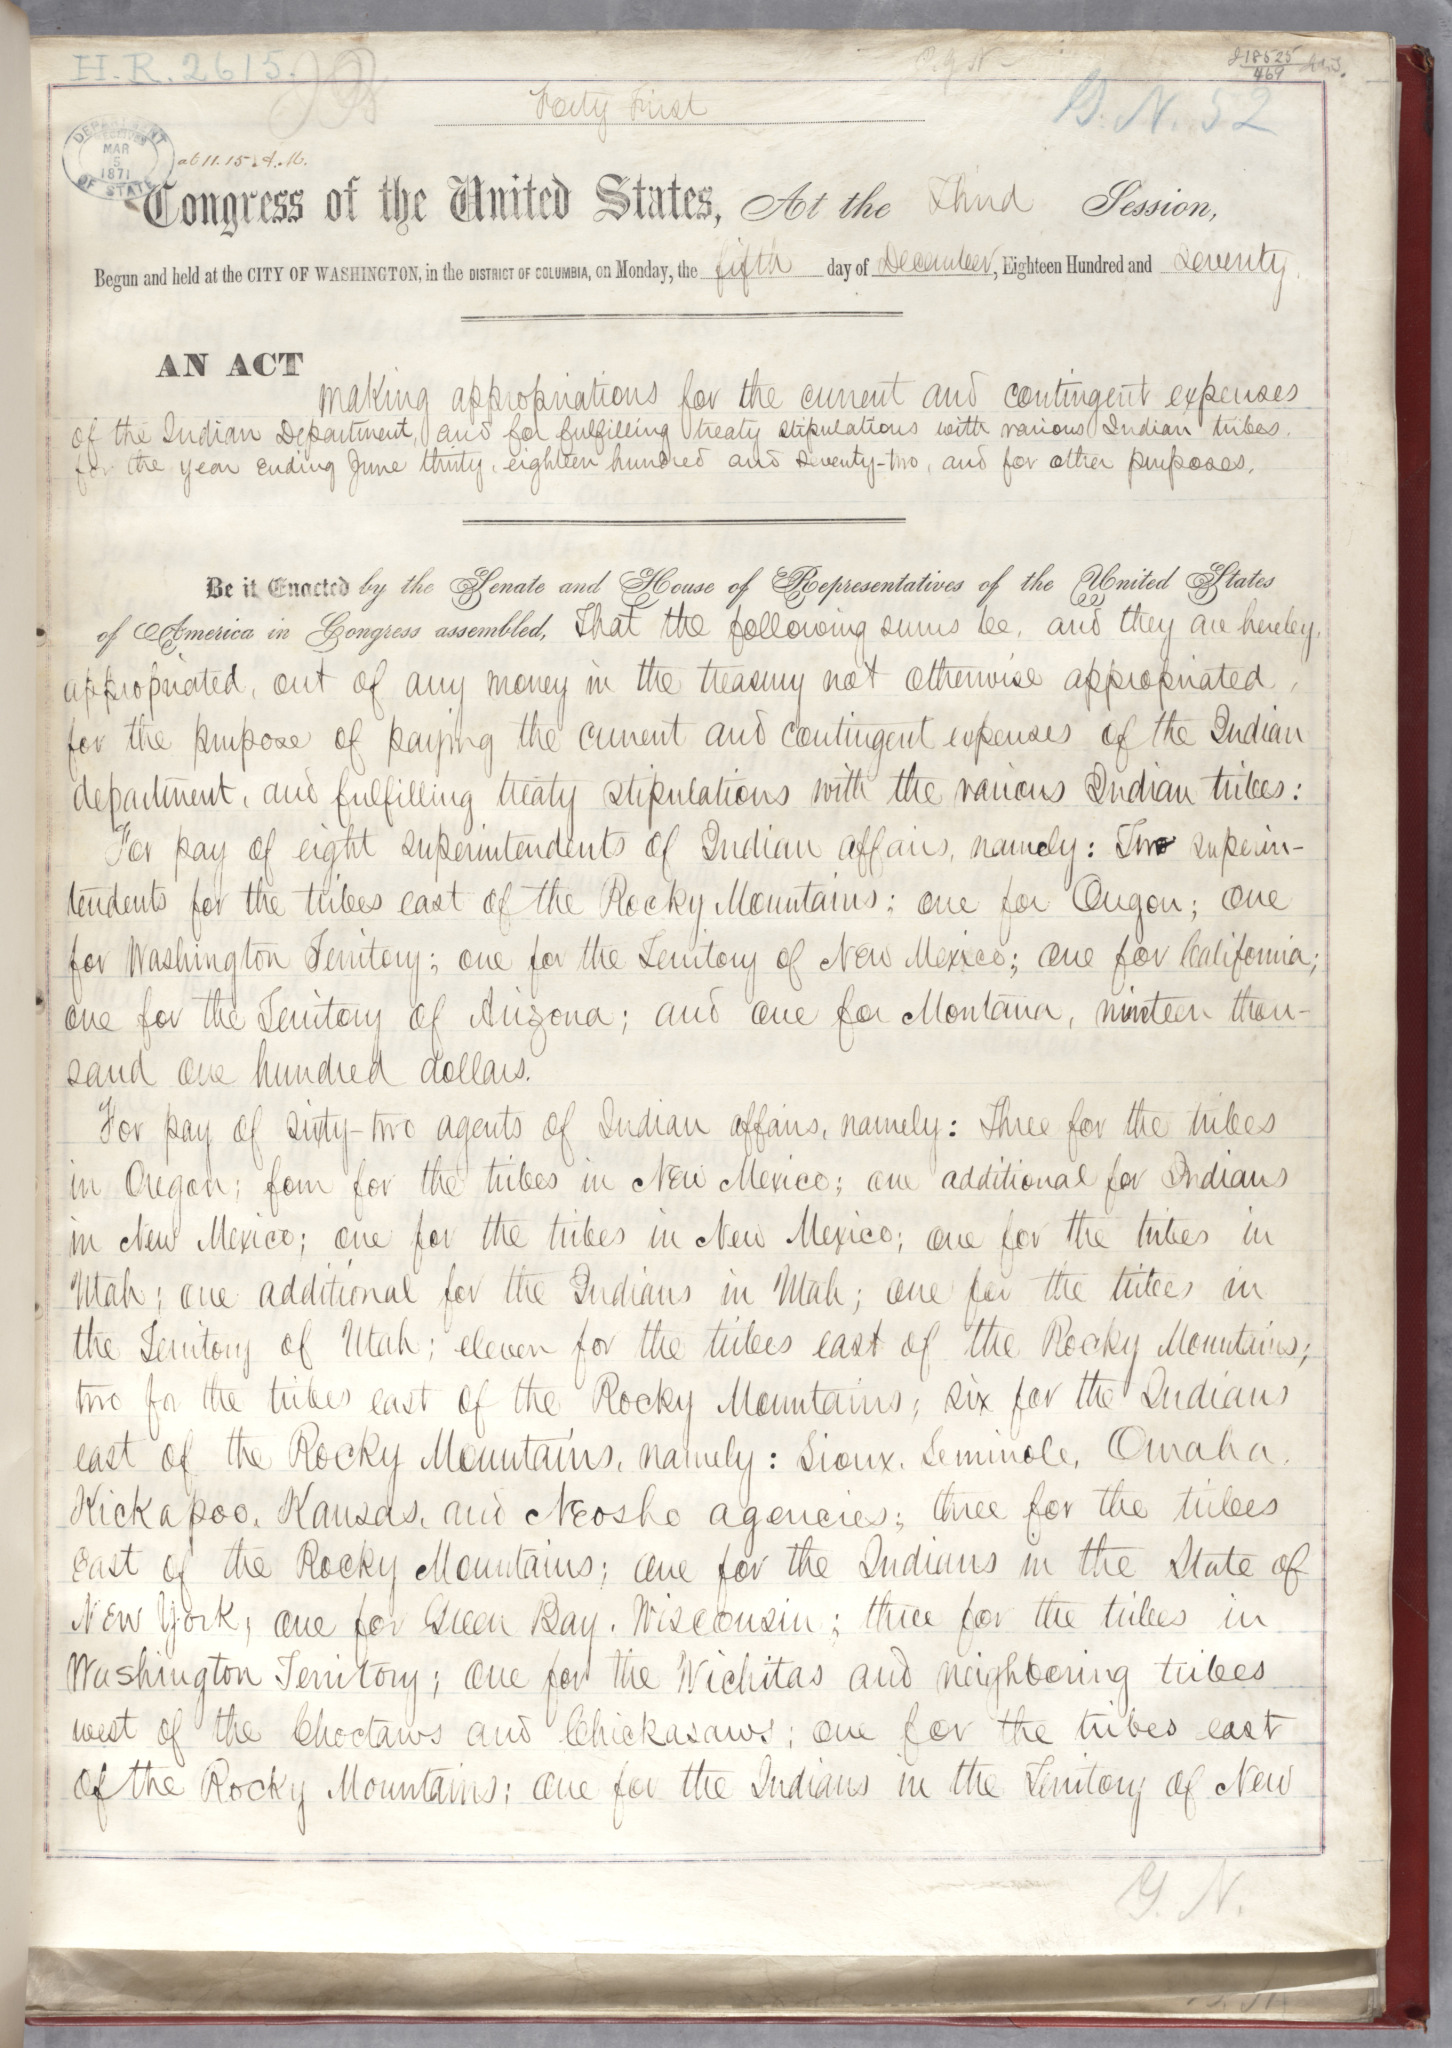 H.R. 2615.
18525
469
Forty First
G. N. 52
DEPARTMENT
MAR
5
1871
OF STATE
at 11.15 A.M.
Congress of the United States, At the Third Session,
Begun and held at the CITY OF WASHINGTON, in the DISTRICT OF COLUMBIA, on Monday, the fifth day of December, Eighteen Hundred and Seventy.
AN ACT making appropriations for the current and contingent expenses
of the Indian Department, and for fulfilling treaty stipulations with various Indian tribes,
for the year ending June thirty, eighteen hundred and seventy-two, and for other purposes.
Be it Enacted by the Senate and House of Representatives of the United States
of America in Congress assembled, That the following sums be, and they are hereby,
appropriated, out of any money in the treasury not otherwise appropriated,
for the purpose of paying the current and contingent expenses of the Indian
department, and fulfilling treaty stipulations with the various Indian tribes:
For pay of eight superintendents of Indian affairs, namely: Two superin-
tendents for the tribes east of the Rocky Mountains; one for Oregon; one
for Washington Territory; one for the Territory of New Mexico; one for California;
one for the Territory of Arizona; and one for Montana, nineteen thou-
sand one hundred dollars.
For pay of sixty-two agents of Indian affairs, namely: Three for the tribes
in Oregon; four for the tribes in New Mexico; one additional for Indians
in New Mexico; one for the tribes in New Mexico; one for the tribes in
Utah; one additional for the Indians in Utah; one for the tribes in
the Territory of Utah; eleven for the tribes east of the Rocky Mountains;
two for the tribes east of the Rocky Mountains; six for the Indians
east of the Rocky Mountains, namely: Sioux, Seminole, Omaha,
Kickapoo, Kansas, and Neosho agencies; three for the tribes
east of the Rocky Mountains; one for the Indians in the State of
New York; one for Green Bay, Wisconsin; three for the tribes in
Washington Territory; one for the Wichitas and neighboring tribes
west of the Choctaws and Chickasaws; one for the tribes east
of the Rocky Mountains; one for the Indians in the Territory of New
G. N.